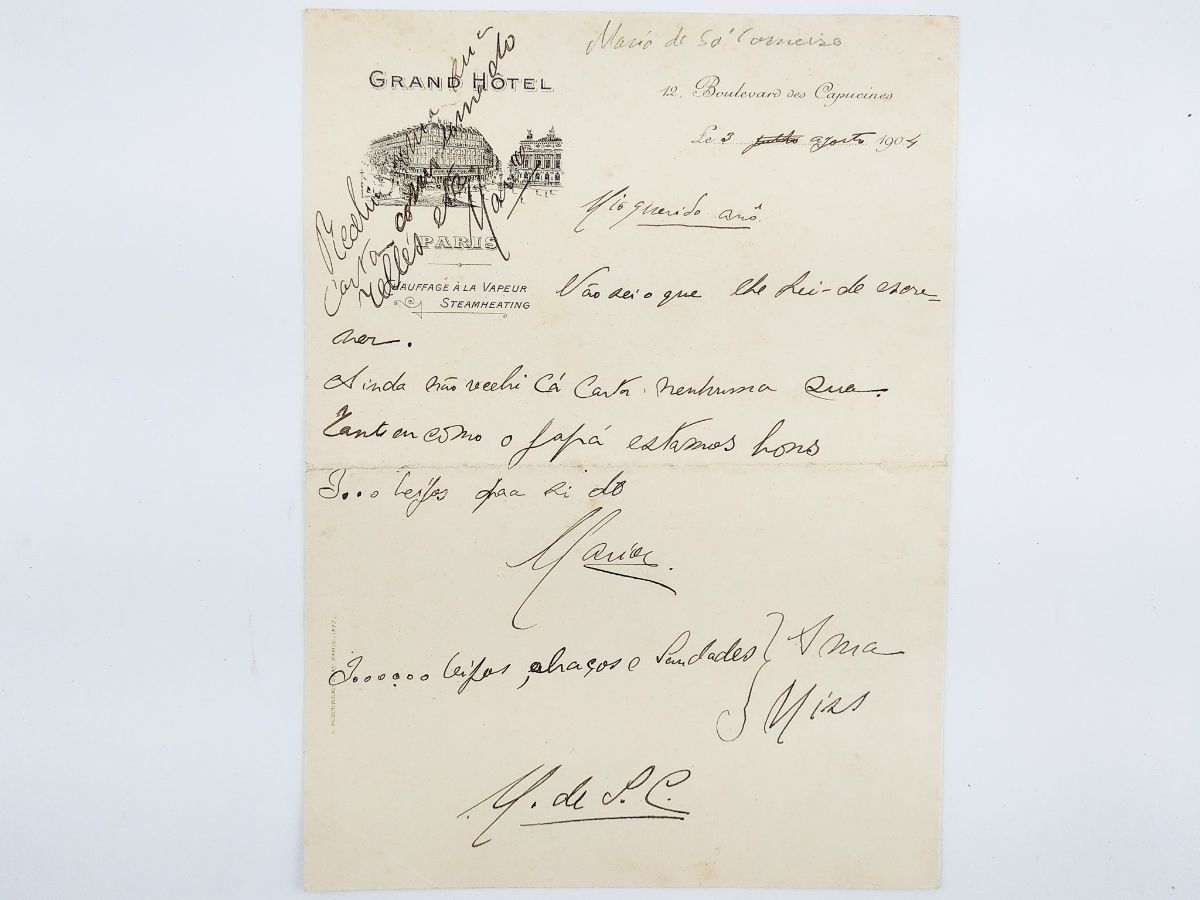 Mario de Sá Carneiro
GRAND HÔTEL
12, Boulevard des Capucines
Le 3 julho agosto 1904
PARIS
CHAUFFAGE À LA VAPEUR
STEAMHEATING
Recebi sua
carta
Mario
Mio querido avô
Não sei o que lhe hei-de escre-
ver.
Ainda não recebi cá carta nenhuma sua.
Tant eu cómo o papá estamos bons
3...0 beijos para si do
Mario.
3000000 beijos, abraços e Saudades } Ama
Miss
M. de S. C.